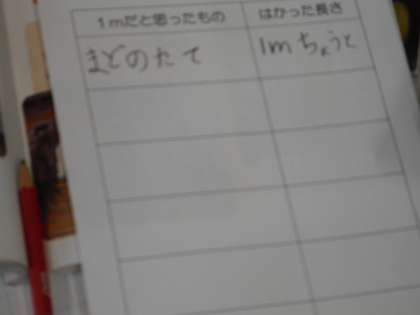 1mだと思ったもの
はかった長さ
まどのたて
1mちょうど